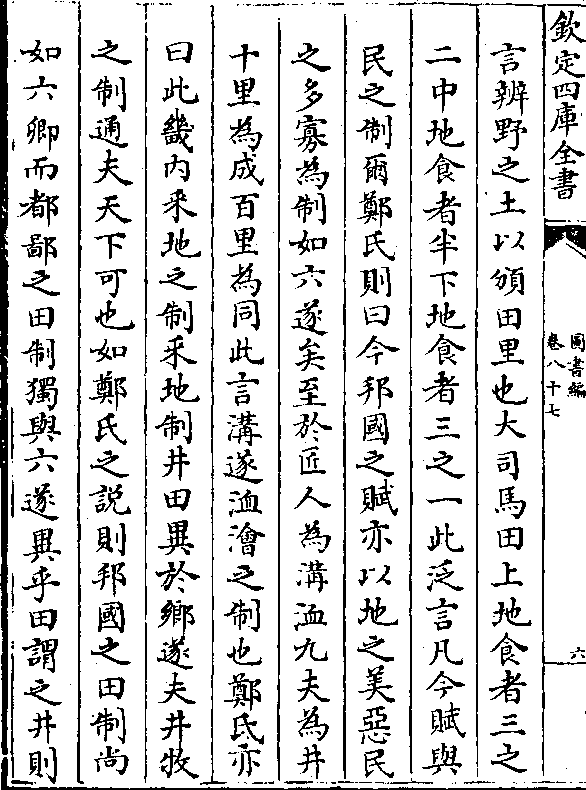 欽定四庫全書
圖書編
卷八十七
六
言辨野之土以頒田里也大司馬田上地食者三之
二中地食者半下地食者三之一此泛言凡令賦與
民之制爾鄭氏則曰今邦國之賦亦以地之美惡民
之多寡為制如六遂矣至於匠人為溝洫九夫為井
十里為成百里為同此言溝遂洫澮之制也鄭氏亦
曰此畿内采地之制采地制井田異於鄉遂夫井牧
之制通夫天下可也如鄭氏之説則邦國之田制尚
如六卿而都鄙之田制獨與六遂異乎田謂之井則